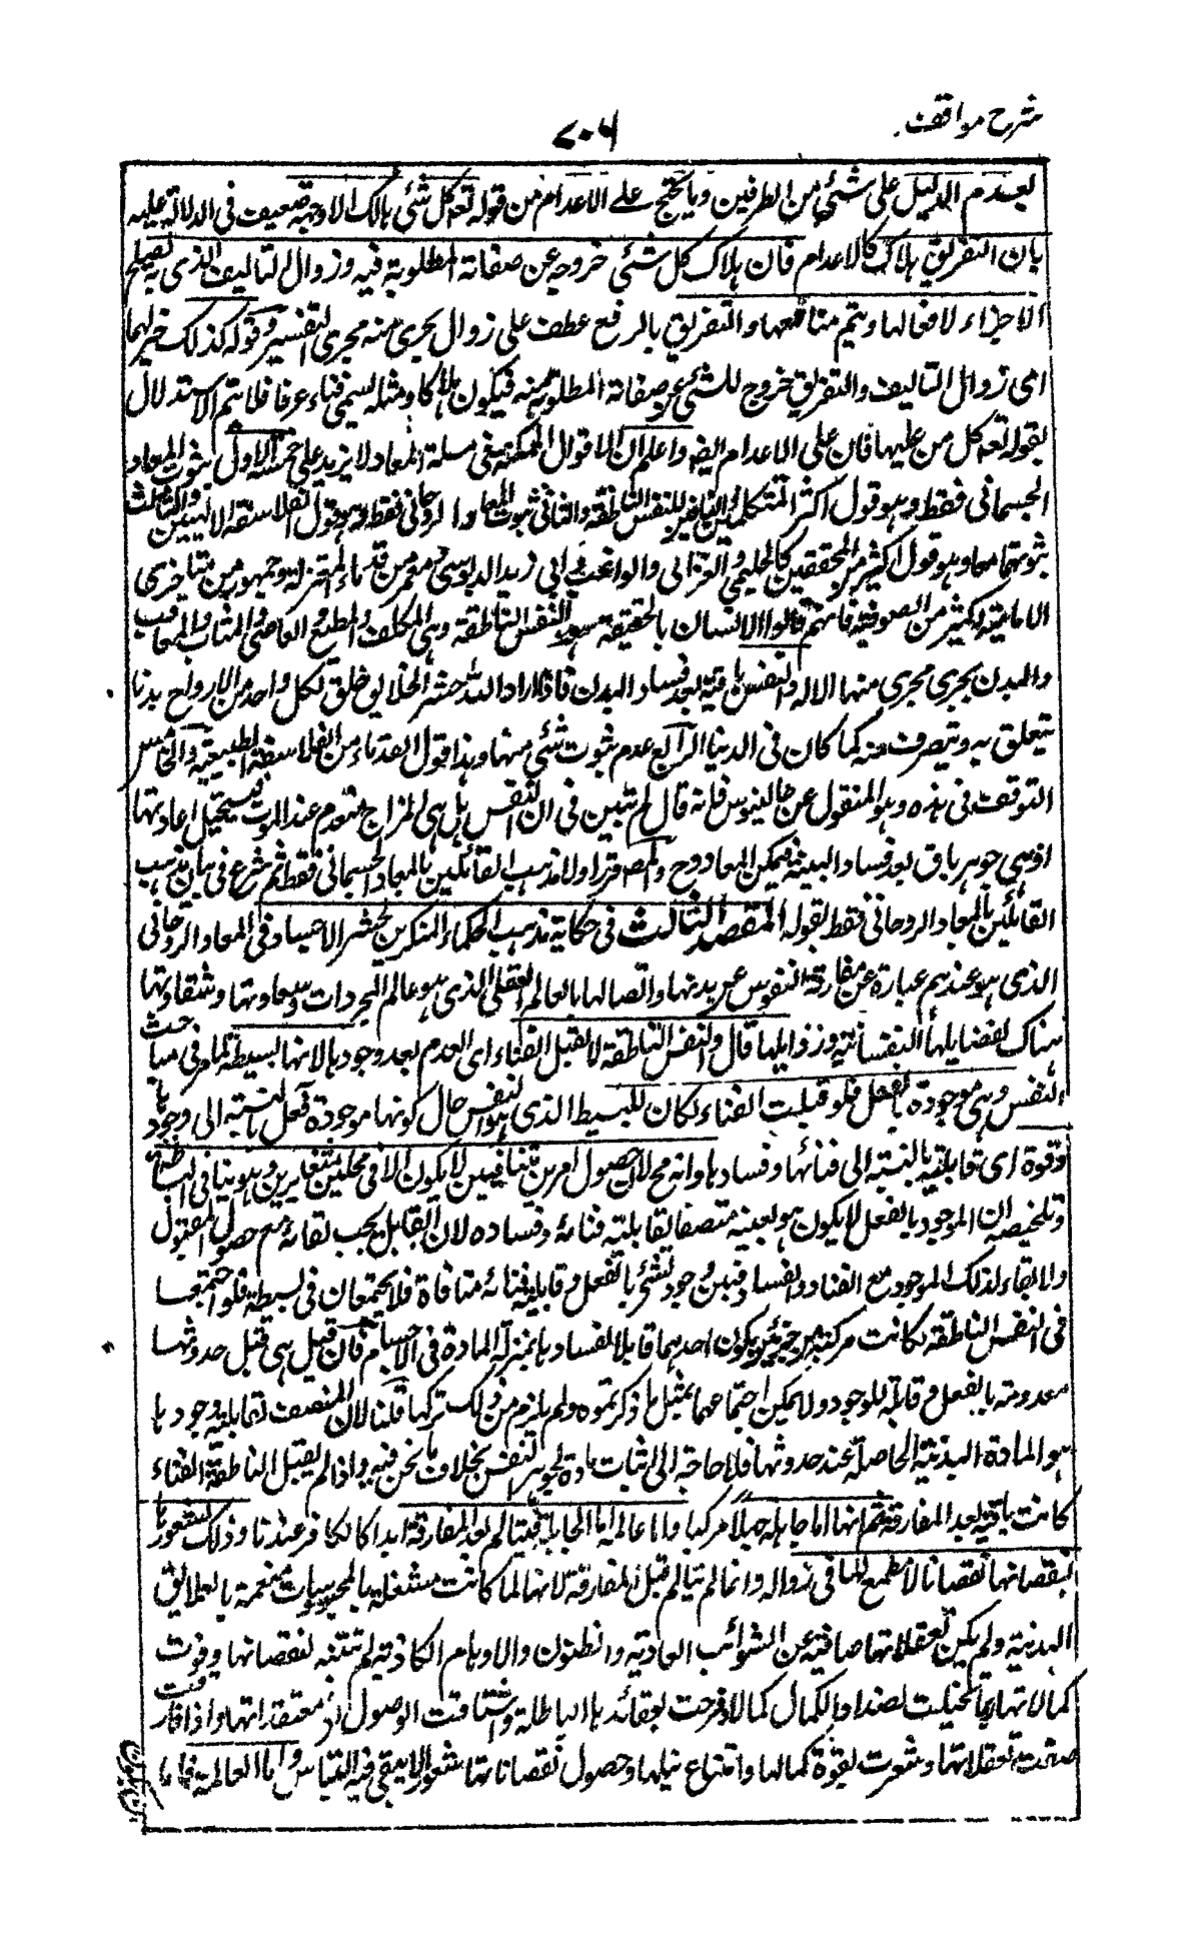 شرح مواقف
۷۰۶
لعدم الدليل على شئ من الطرفين وما يحتج على الاعدام من قوله تعه كل شئ هالك الا وجهه ضعيف فى الدلالة عليه
بان التفريق هلاك كالاعدام فان هلاك كل شئ خروجه عن صفاته المطلوبة فيه وزوال التاليف الذى به تصلح
الاجزاء لافعالها ويتم منافعها والتفريق بالرفع عطف على زوال يجرى منه مجرى التفسير وقوله كذلك خبر لهما
اى زوال التاليف والتفريق خروج للشئ عن صفاته المطلوبة منه فيكون هلاكا ومثله يسمى فناء عرفا فلا يتم الاستدلال
بقوله تعه كل من عليها فان على الاعدام ايضا واعلم ان الاقوال الممكنة فى مسئلة المعاد لا يزيد على خمسة الاول ثبوت المعاد
الجسمانى فقط وهو قول اكثر المتكلمين النافين للنفس الناطقة والثانى ثبوت المعاد الروحانى فقط وهو قول الفلاسفة الالهيين والثالث
ثبوتهما معا وهو قول كثير من المحققين كالحليمى والغزالى والراغب وابى زيد الدبوسى ومعمر من قدماء المعتزلة وجمهور من متاخرى
الامامية وكثير من الصوفية فانهم قالوا الانسان بالحقيقة هو النفس الناطقة وهى المكلف والمطيع والعاصى والمثاب والمعاقب
والبدن يجرى مجرى منها الالة والنفس باقية بعد فساد البدن فاذا اراد الله حشر الخلايق خلق لكل واحد من الارواح بدنا
يتعلق به ويتصرف فيه كما كان فى الدنيا الرابع عدم ثبوت شئ منهما وهذا قول القدماء من الفلاسفة الطبيعية والخامس
التوقف فى هذه وهو المنقول عن جالينوس فانه قال لم يتبين لى ان النفس هل هى المزاج فينعدم عند الموت فيستحيل اعادتها
او هى جوهر باق بعد فساد البنية فيمكن المعاد وح والمص قرر اولا مذهب القائلين بالمعاد الجسمانى فقط ثم شرع فى بيان مذهب
القائلين بالمعاد الروحانى فقط بقوله المقصد الثالث فى حكاية مذهب الحكماء المنكرين لحشر الاجساد فى المعاد الروحانى
الذى هو عندهم عبارة عن مفارقة النفوس عن بدنها واتصالها بالعالم العقلى الذى هو عالم المجردات وسعادتها وشقاوتها
هناك بفضايلها النفسانية ورذايلها قال والنفس الناطقة لا تقبل الفناء اى العدم بعد وجودها لانها بسيطة لما مر فى مباحث
النفس وهى موجودة بالفعل فلو قبلت الفناء لكان للبسيط الذى هو النفس حال كونها موجودة فعل بالنسبة الى وجودها
وقوة اى قابلية بالنسبة الى فنائها وفسادها وانه مح لان حصول امرين متنافيين لا يكون الا فى محلين متغايرين وهو ينافى البساطة
وتلخيصه ان الموجود بالفعل لا يكون هو بعينه متصفا بقابلية فنائه وفساده لان القابل يجب بقائه مع حصول المقبول
ولا بقاء لذلك الموجود مع الفناء والفساد فبين وجود الشئ بالفعل وقابلية فنائه منافاة فلا يجتمعان فى بسيطة فلو اجتمعا
فى النفس الناطقة لكانت مركبة من جزئين يكون احدهما قابلا للفساد بمنزلة المادة فى الاجسام فان قيل هى قبل حدوثها
معدومة بالفعل وقابلة للوجود ولا يمكن اجتماعهما بمثل ما ذكرتموه ولم يلزم من ذلك تركبها قلنا لان المتصف لقابلية وجودها
هو المادة البدنية الحاصلة عند حدوثها فلا حاجة الى اثبات مادة لجوهر النفس بخلاف ما نحن فيه واذا لم يقبل الناطقة الفناء
كانت باقية بعد المفارقة ثم انها اما جاهلة جهلا مركبا واما عالمة اما الجاهلة فيتالم بعد المفارقة ابدا كالكافر عندنا وذلك لشعورها
بنقصانها نقصانا لا مطمع لها فى زواله وانما لم يتالم قبل المفارقة لانها لما كانت مشغلة بالمحسوسات منغمة بالعلايق
البدنية ولم يكن تعقلاتها صافية عن الشوائب العادية والظنون والاوهام الكاذبة لم تتنبه لنقصانها وفوت
كمالاتها بل تخيلت اضداد الكمال كمالا وفرحت بعقائدها الباطلة واشتاقت الوصول الى معتقداتها واذا فارقت
صفت تعقلاتها وشعرت بقوة كمالها وامتناع نيلها وحصول نقصاناتها شعورا لا يبقى فيه التباس واما العالمة فاما